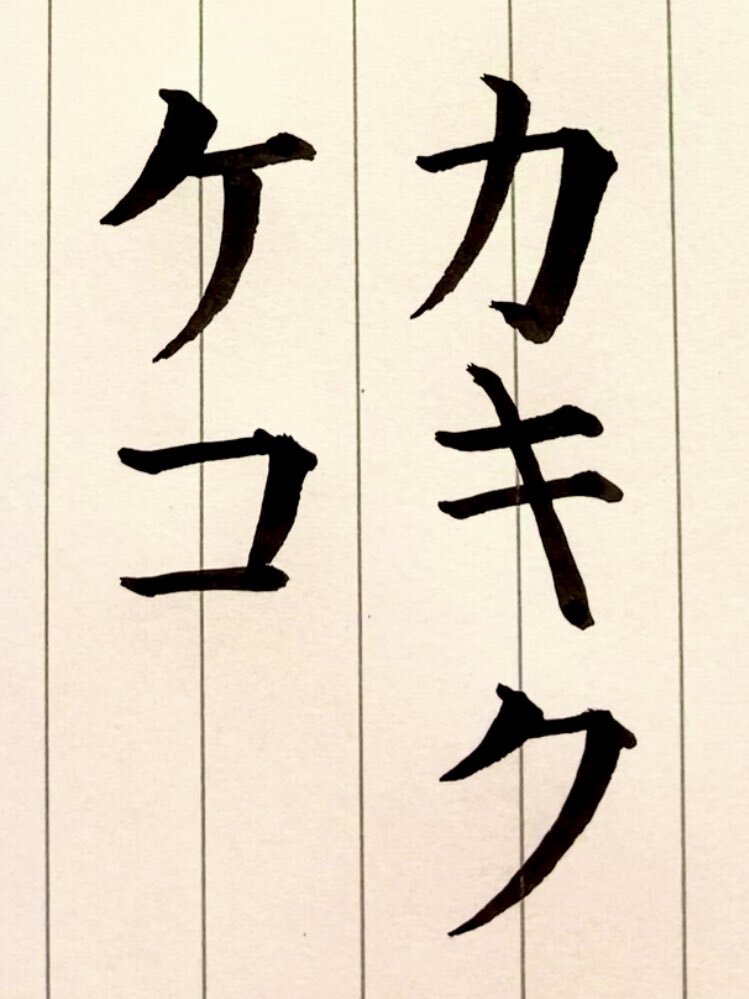 カキク
ケコ